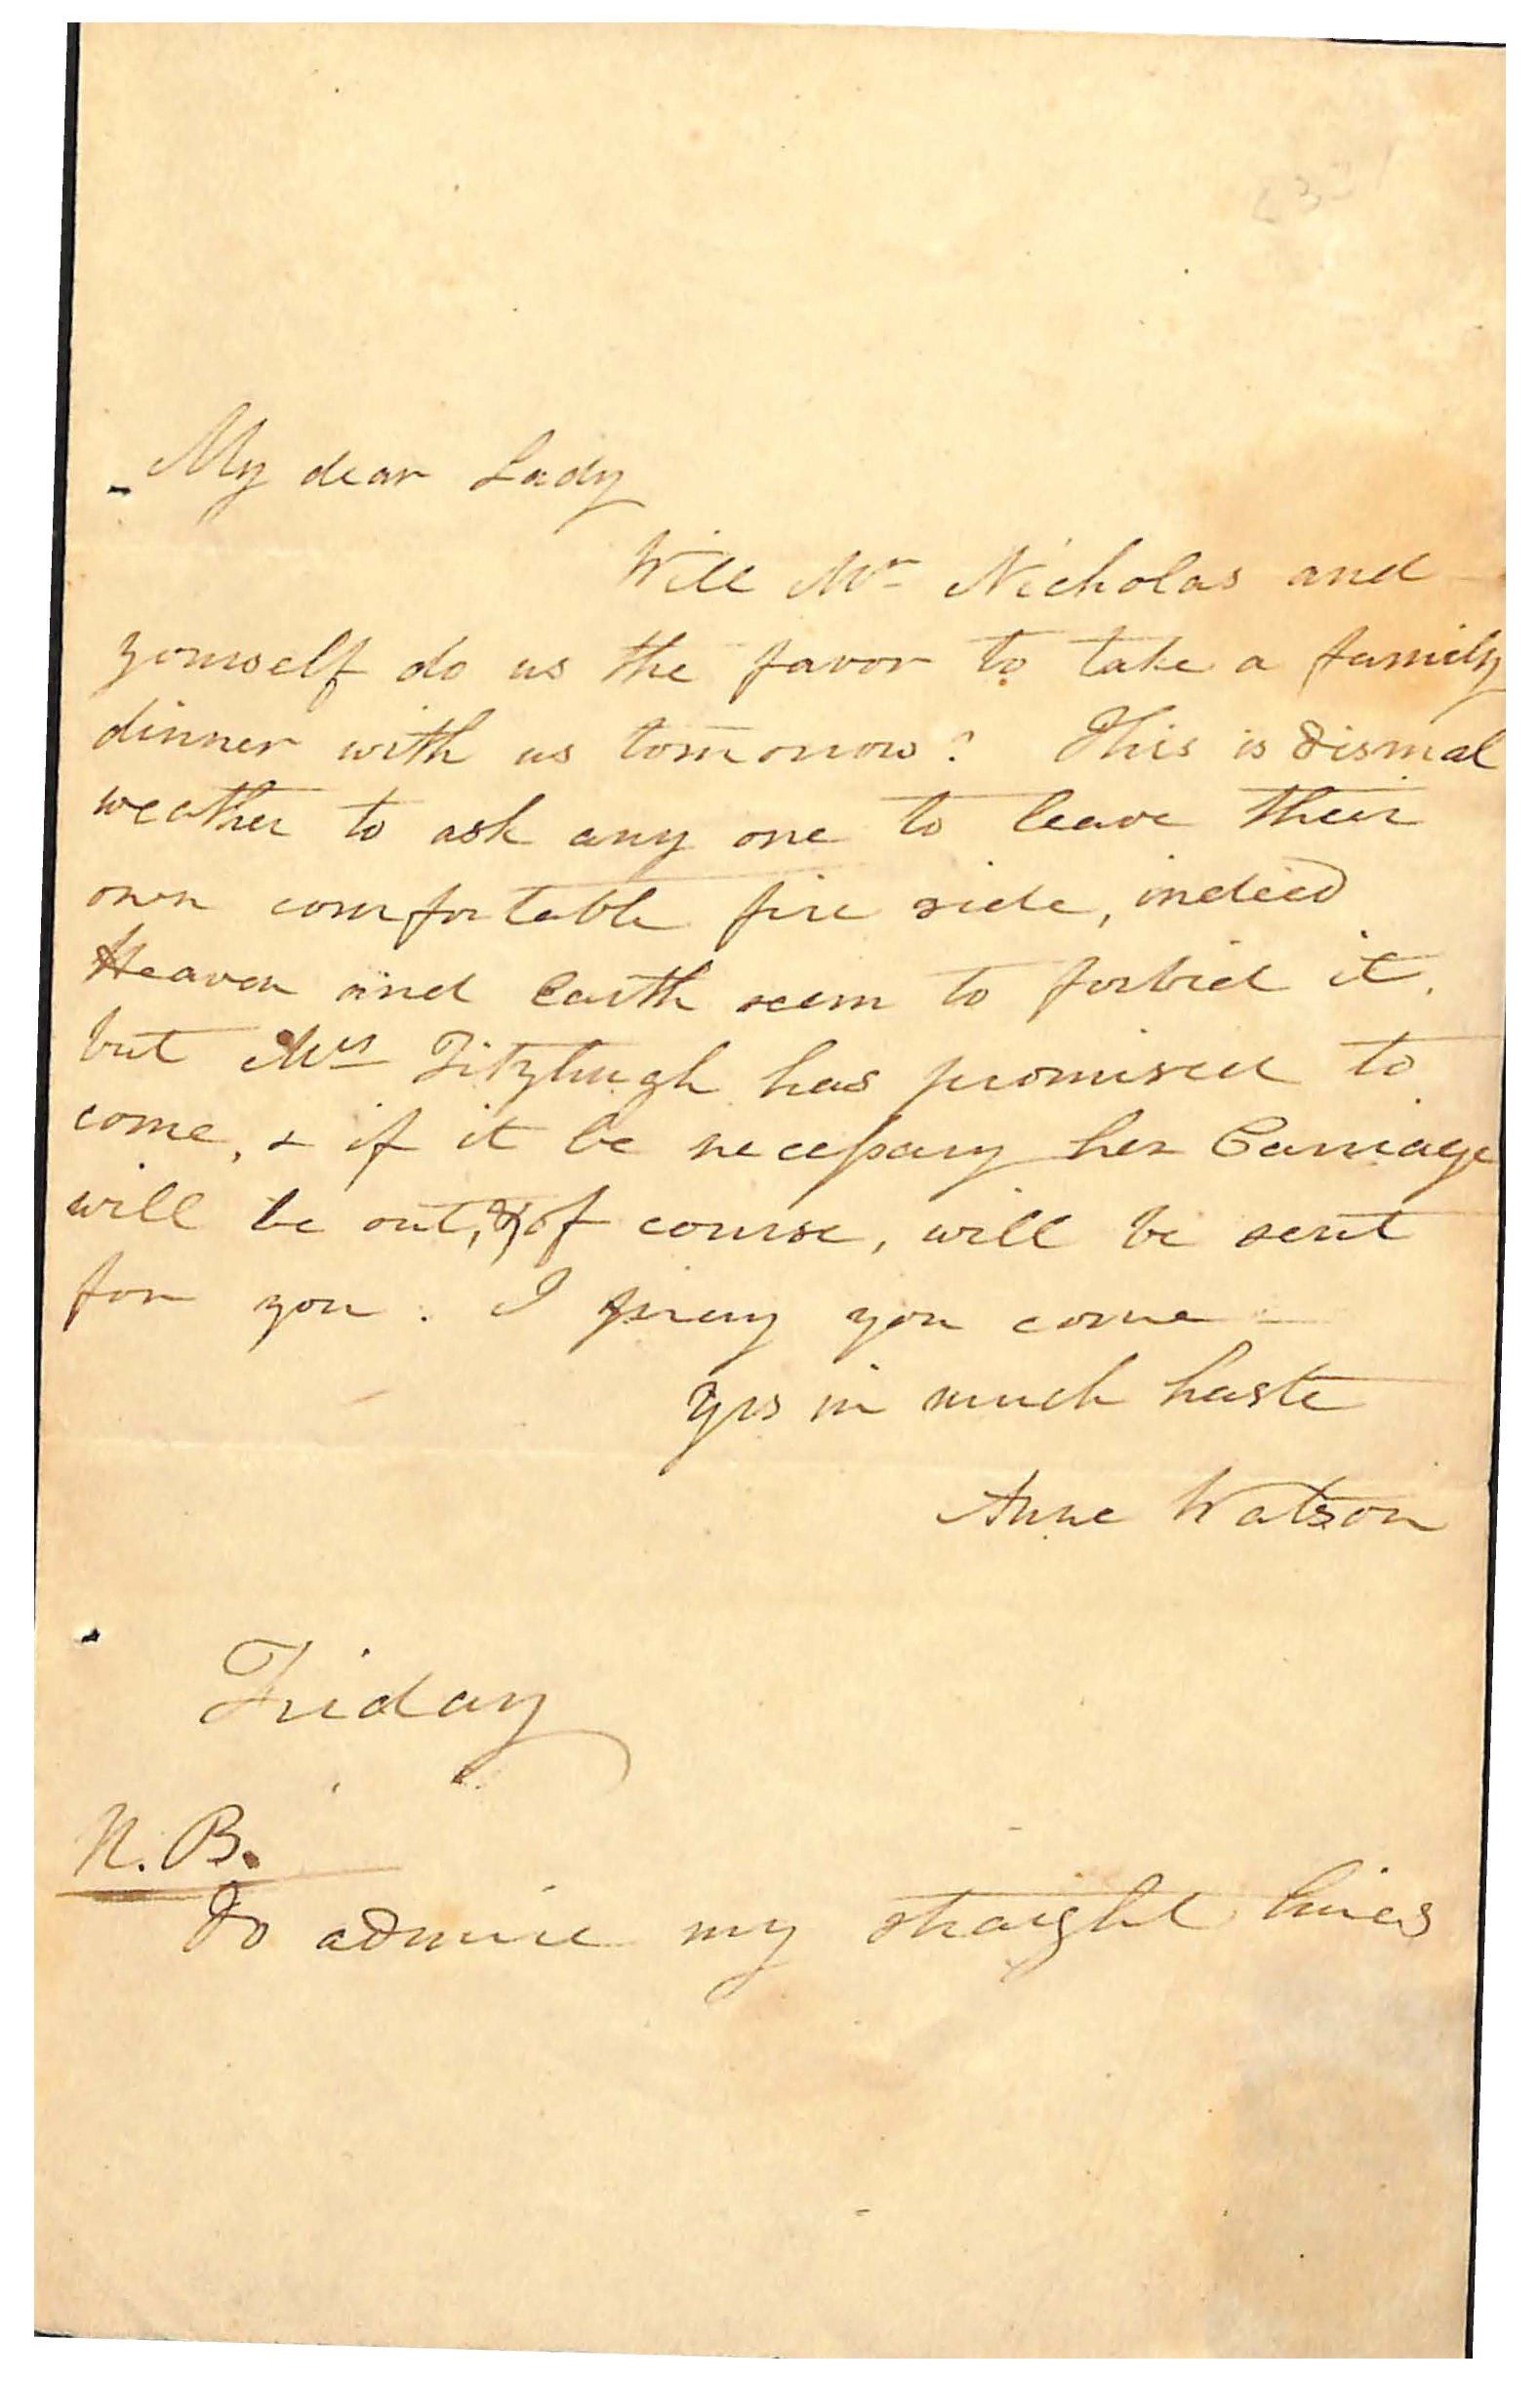 My dear Lady
Will Mr Nicholas and
yourself do us the favor to take a family
dinner with us tomorrow? This is dismal
weather to ask any one to leave their
own comfortable fire side, indeed
Heaven and Earth seem to forbid it,
but Mrs Fitzhugh has promised to
come, & if it be necessary her Carriage
will be out, & of course, will be sent
for you. I pray you come
Yrs in much haste
Anne Watson
Friday
N. B.
Do admire my straight lines